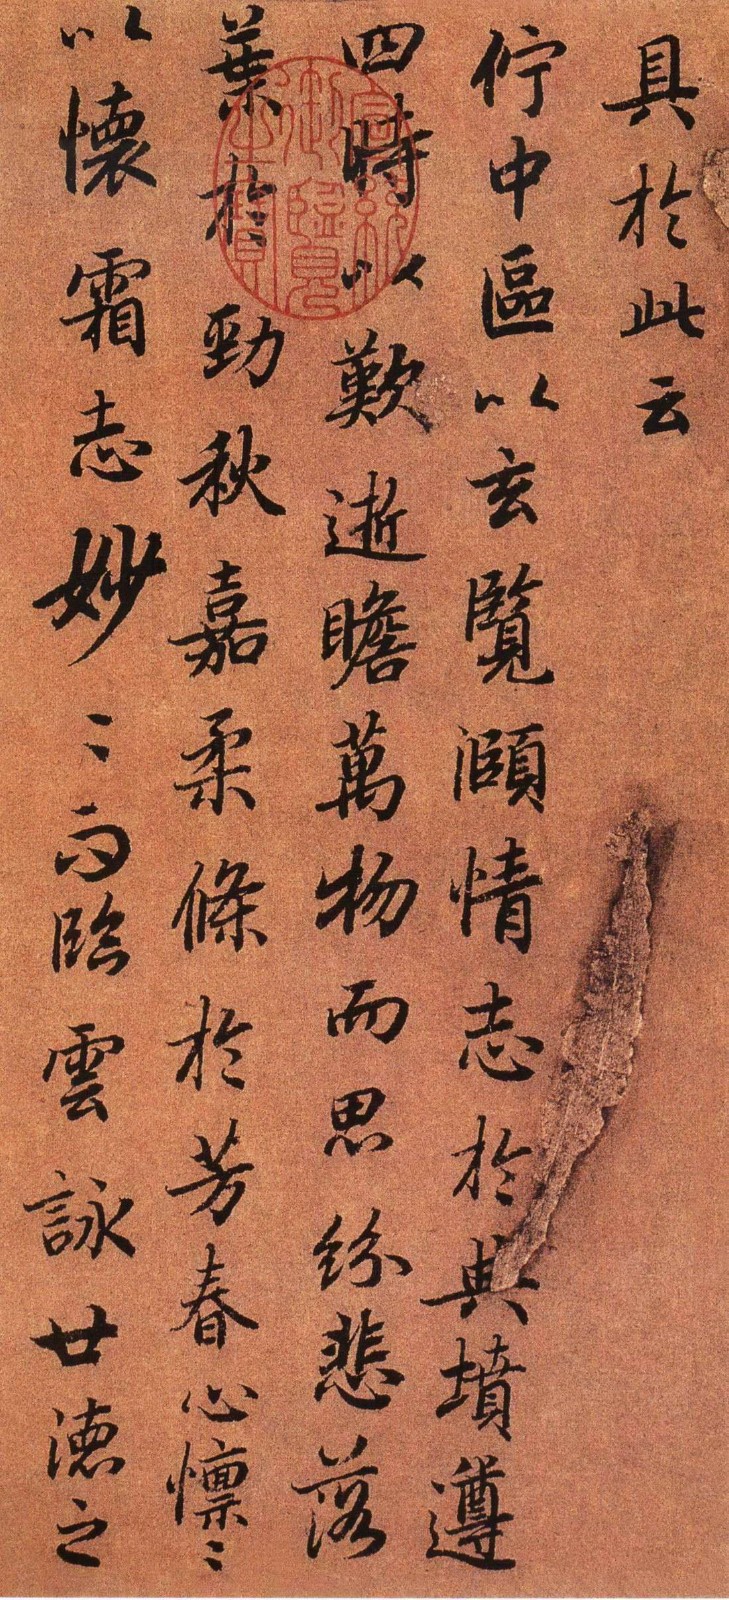 具於此云
佇中區以玄覽頤情志於典墳遵
四時以歎逝瞻萬物而思紛悲落
葉於勁秋嘉柔條於芳春心懍〻
以懷霜志妙〻而臨雲詠世德之
宣統御覽之寶